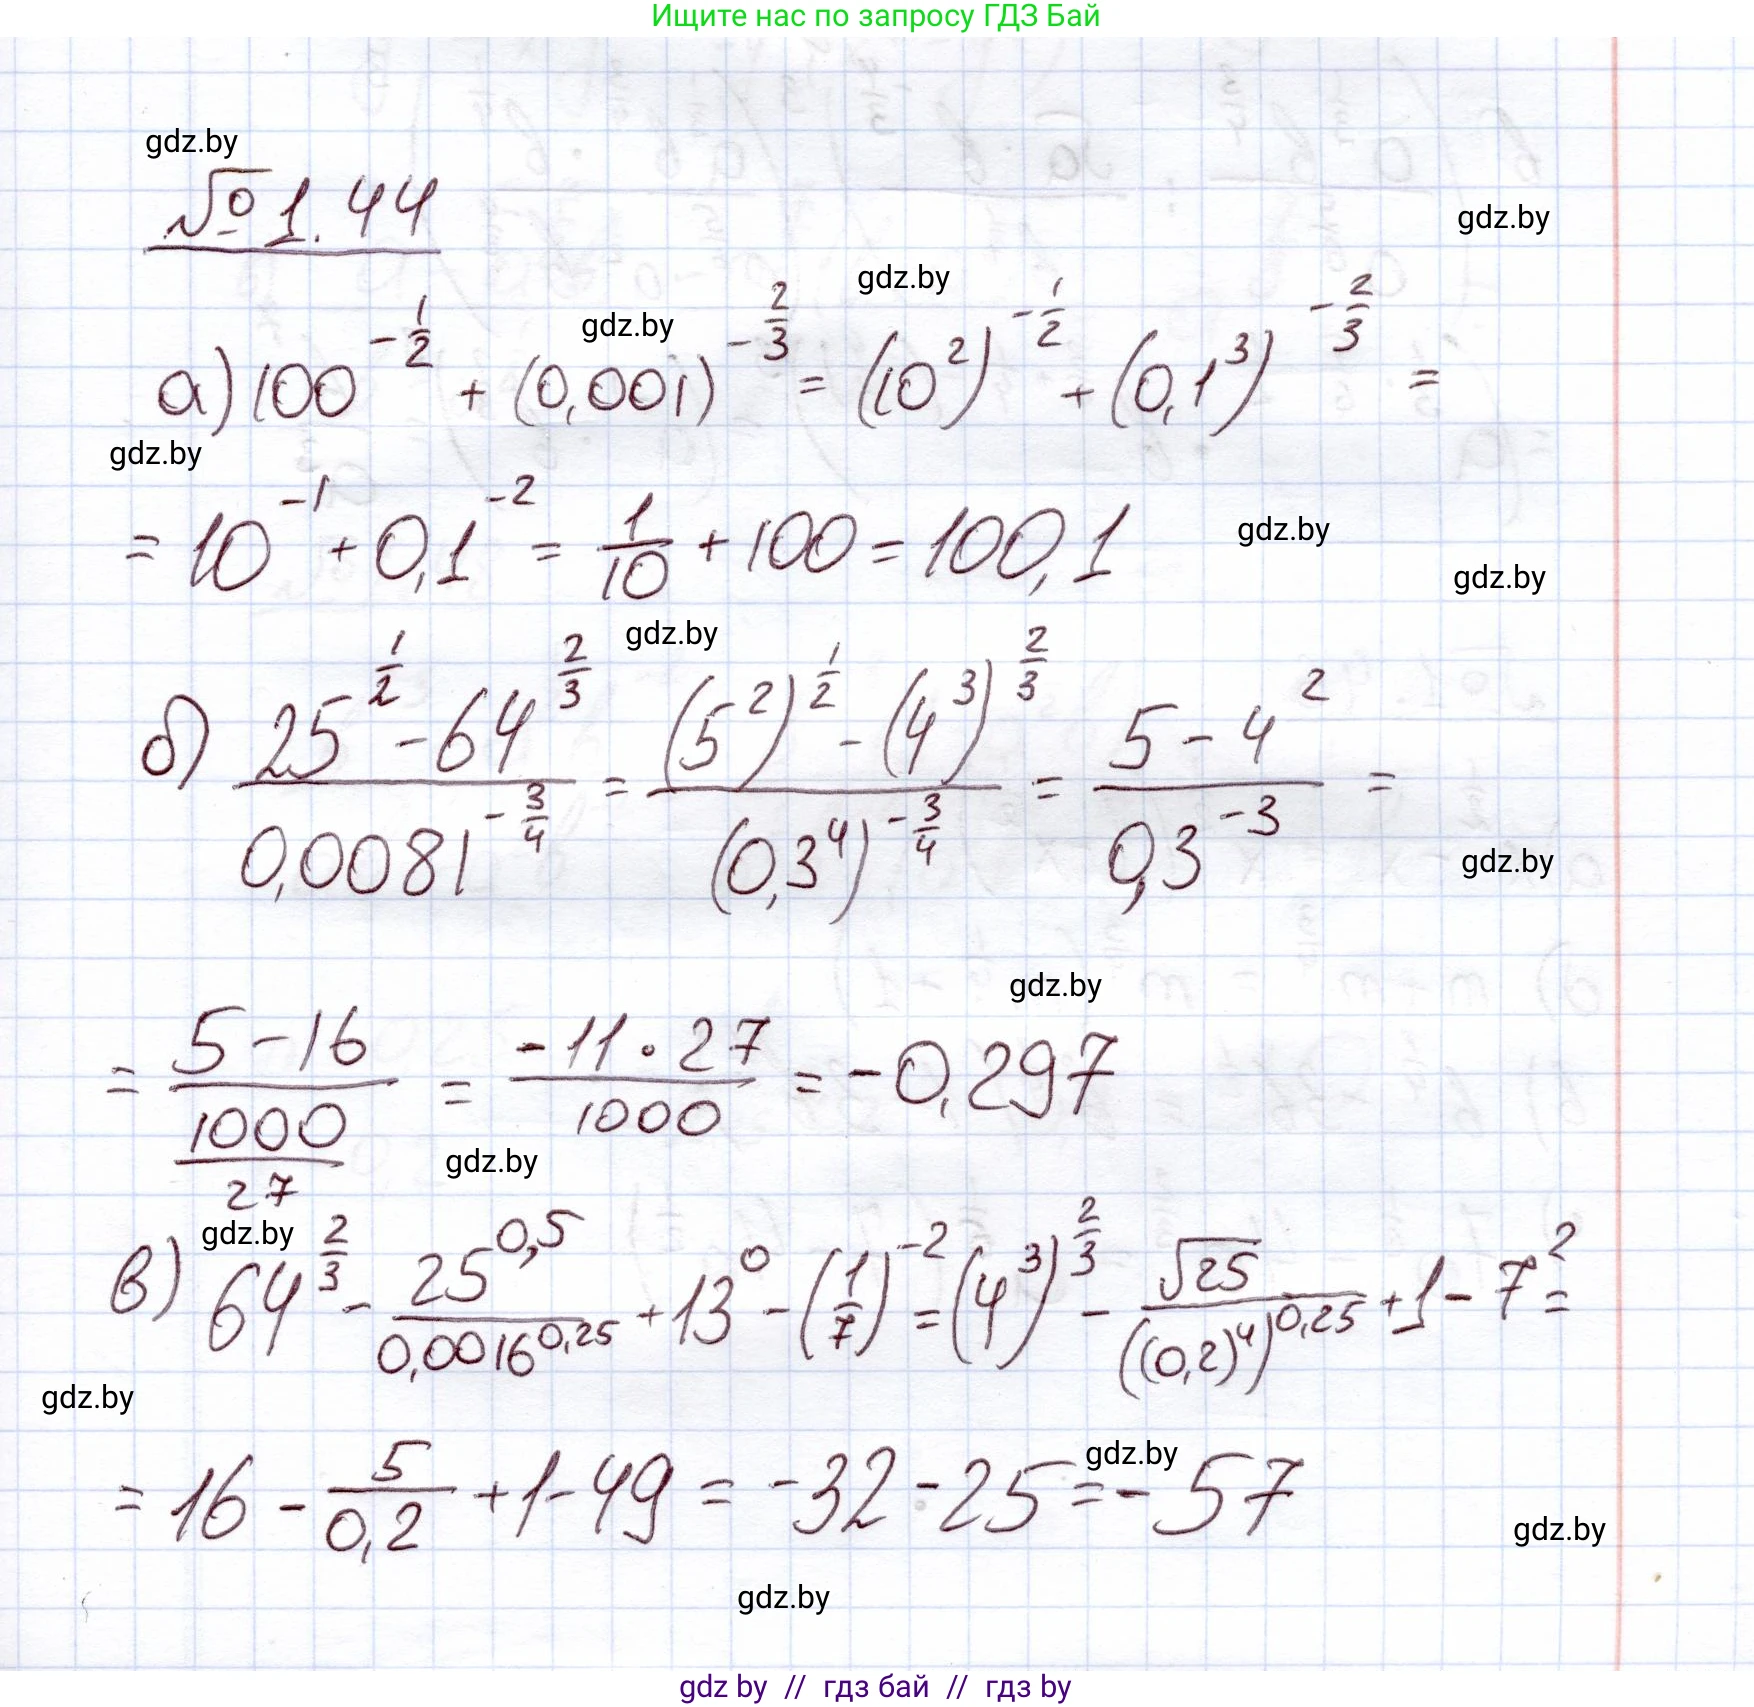 Ищите нас по запросу ГДЗ Бай
gdz.by
№ 1.44
gdz.by
gdz.by
gdz.by
а) 100^(-1/2) + (0,001)^(-2/3) = (10^2)^(-1/2) + (0,1^3)^(-2/3) =
gdz.by
= 10^(-1) + 0,1^(-2) = 1/10 + 100 = 100,1
gdz.by
gdz.by
gdz.by
б) (25^(1/2) - 64^(2/3))/(0,0081^(-3/4)) = ((5^2)^(1/2) - (4^3)^(2/3))/((0,3^4)^(-3/4)) = (5 - 4^2)/(0,3^(-3)) =
gdz.by
gdz.by
= (5 - 16)/(1000/27) = (-11 · 27)/1000 = -0,297
gdz.by
gdz.by
в) 64^(2/3) - 25^(0,5)/0,0016^(0,25) + 13^0 - (1/7)^(-2) = (4^3)^(2/3) - √25/((0,2)^4)^(0,25) + 1 - 7^2 =
gdz.by
gdz.by
= 16 - 5/0,2 + 1 - 49 = -32 - 25 = -57
gdz.by
gdz.by
gdz by // гдз бай // gdz by